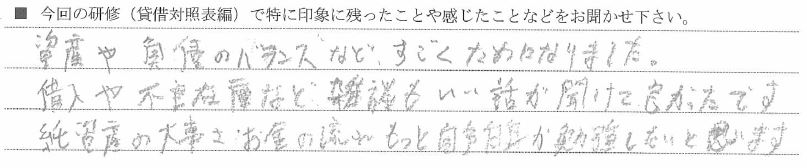 ■ 今回の研修（貸借対照表編）で特に印象に残ったことや感じたことなどをお聞かせ下さい。
資産や負債のバランスなど、すごくためになりました。
借入や不良在庫など雑談もいい話が聞けて良かったです
純資産の大事さ お金の流れ もっと自分自身が勉強しないと思います